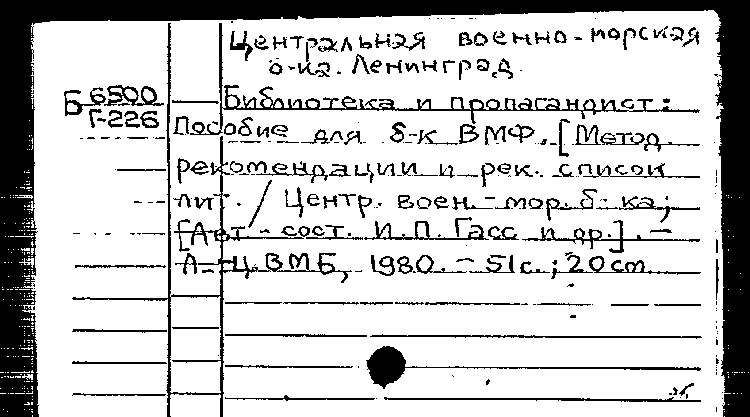 Центральная военно-морская
б-ка. Ленинград.
Б 6500
Г-226
Библиотека и пропагандист:
Пособие для б-к ВМФ. [Метод.
рекомендации и рек. список
лит. / Центр. воен.-мор. б-ка;
[Авт.-сост. И.П. Гасс и др.]. —
Л.: ЦВМБ, 1980. — 51 с.; 20 cm